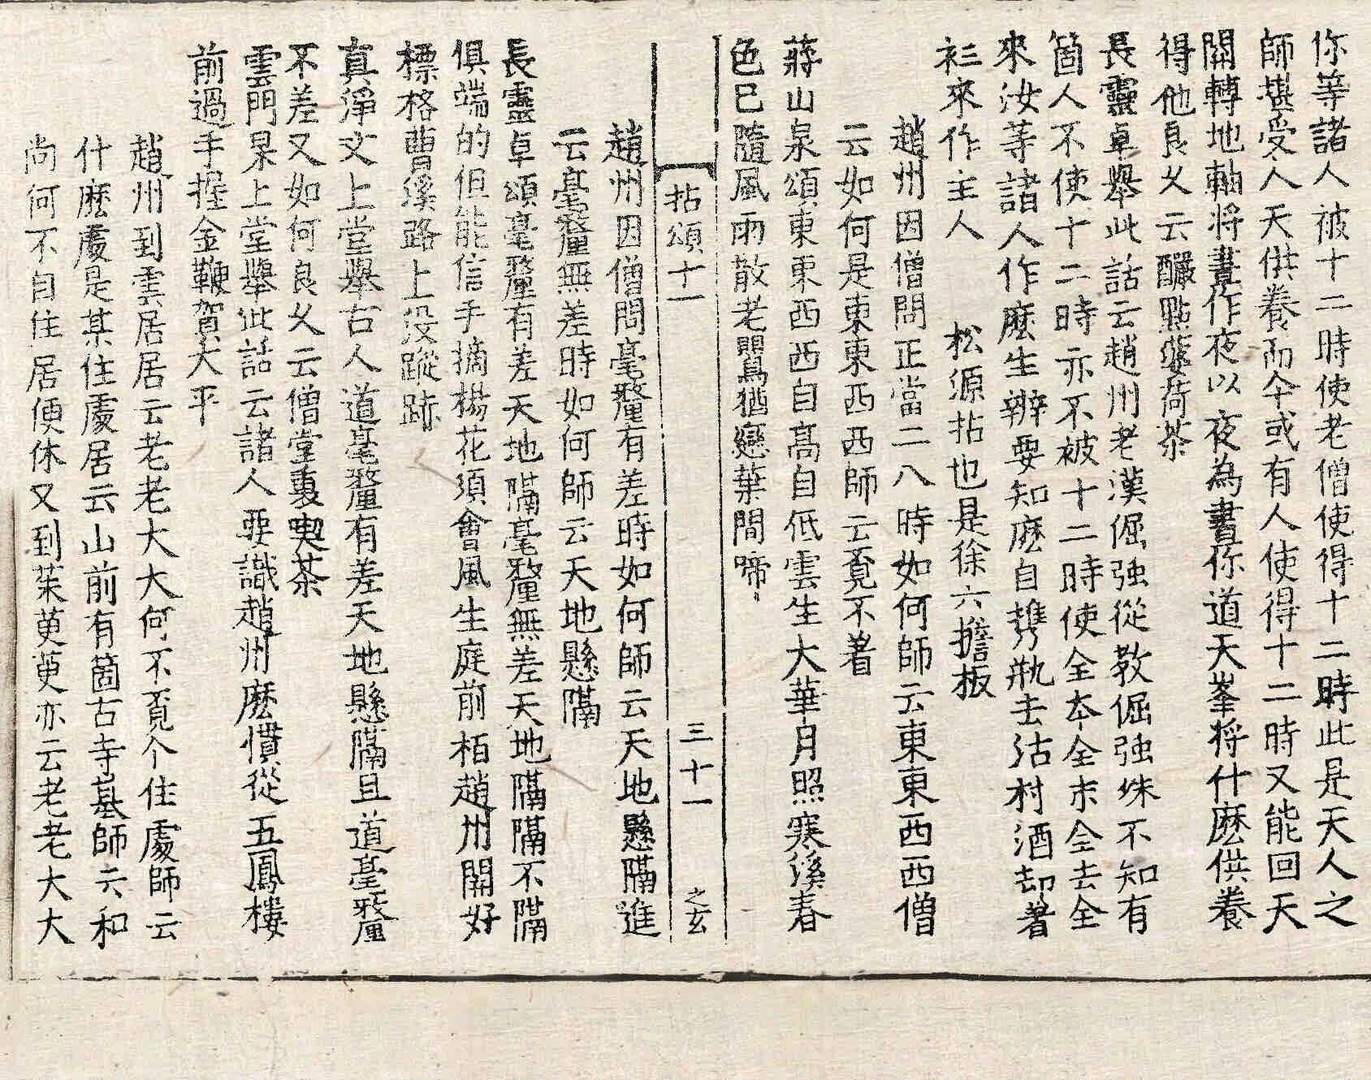 你等諸人被十二時使老僧使得十二時此是天人之
師堪受人天供養而今或有人使得十二時又能回天
關轉地軸將晝作夜以夜為晝你道天峯將什麽供養
得他良久云釅點薆荷茶
長靈卓舉此話云趙州老漢倔強從教倔強殊不知有
箇人不使十二時亦不被十二時使全本全末全去全
來汝等諸人作麽生辨要知麽自携瓶去沽村酒却著
衫來作主人 松源拈也是徐六擔板
趙州因僧問正當二八時如何師云東東西西僧
云如何是東東西西師云覔不著
蔣山泉頌東東西西自高自低雲生大華月照寒溪春
色已隨風雨散老鸎猶戀葉間啼
拈頌十一 三十一 之玄
趙州因僧問毫釐有差時如何師云天地懸隔進
云毫釐無差時如何師云天地懸隔
長靈卓頌毫釐有差天地隔毫釐無差天地隔隔不隔
俱端的但能信手摘楊花須會風生庭前栢趙州關好
標格曹溪路上没蹤跡
真淨文上堂舉古人道毫釐有差天地懸隔且道毫釐
不差又如何良久云僧堂裏喫茶
雲門杲上堂舉此話云諸人要識趙州麽慣從五鳳樓
前過手握金鞭賀大平
趙州到雲居居云老老大大何不覔个住處師云
什麽處是某住處居云山前有箇古寺基師云和
尚何不自住居便休又到茱萸萸亦云老老大大